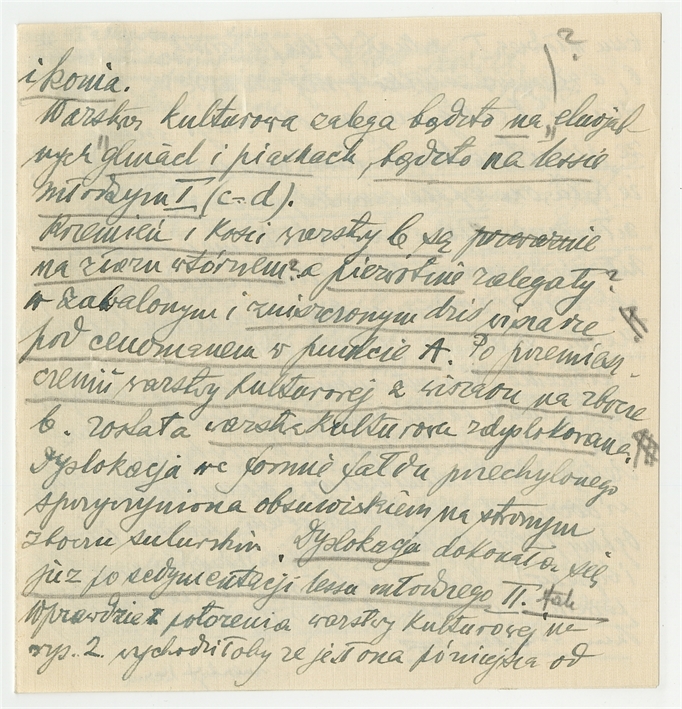 ?
i konia.
Warstwa kulturowa zalega bądźto na „eluvjal-
nych" glinach i piaskach, bądźto na lessie
młodszym I (c-d).
Krzemień i kości warstwy b są przeważnie
na złożu wtórnem? a pierwotnie zalegały?
w zawalonym i zniszczonym dziś wiszarze
pod cenomanem w punkcie A. Po przemiesz-
czeniu warstwy kulturowej z wiszaru na zbocze
b. została warstwa kulturowa zdyslokowana.
Dyslokacja we formie fałdu przechylonego
spowodowana obsuwiskiem na stromym
zboczu sylurskim. Dyslokacja dokonała się
już po sedymentacji lessu młodszego II. tak
Wprawdzie z położenia warstwy kulturowej na
ryc. 2. wychodziłoby że jest ona późniejsza od